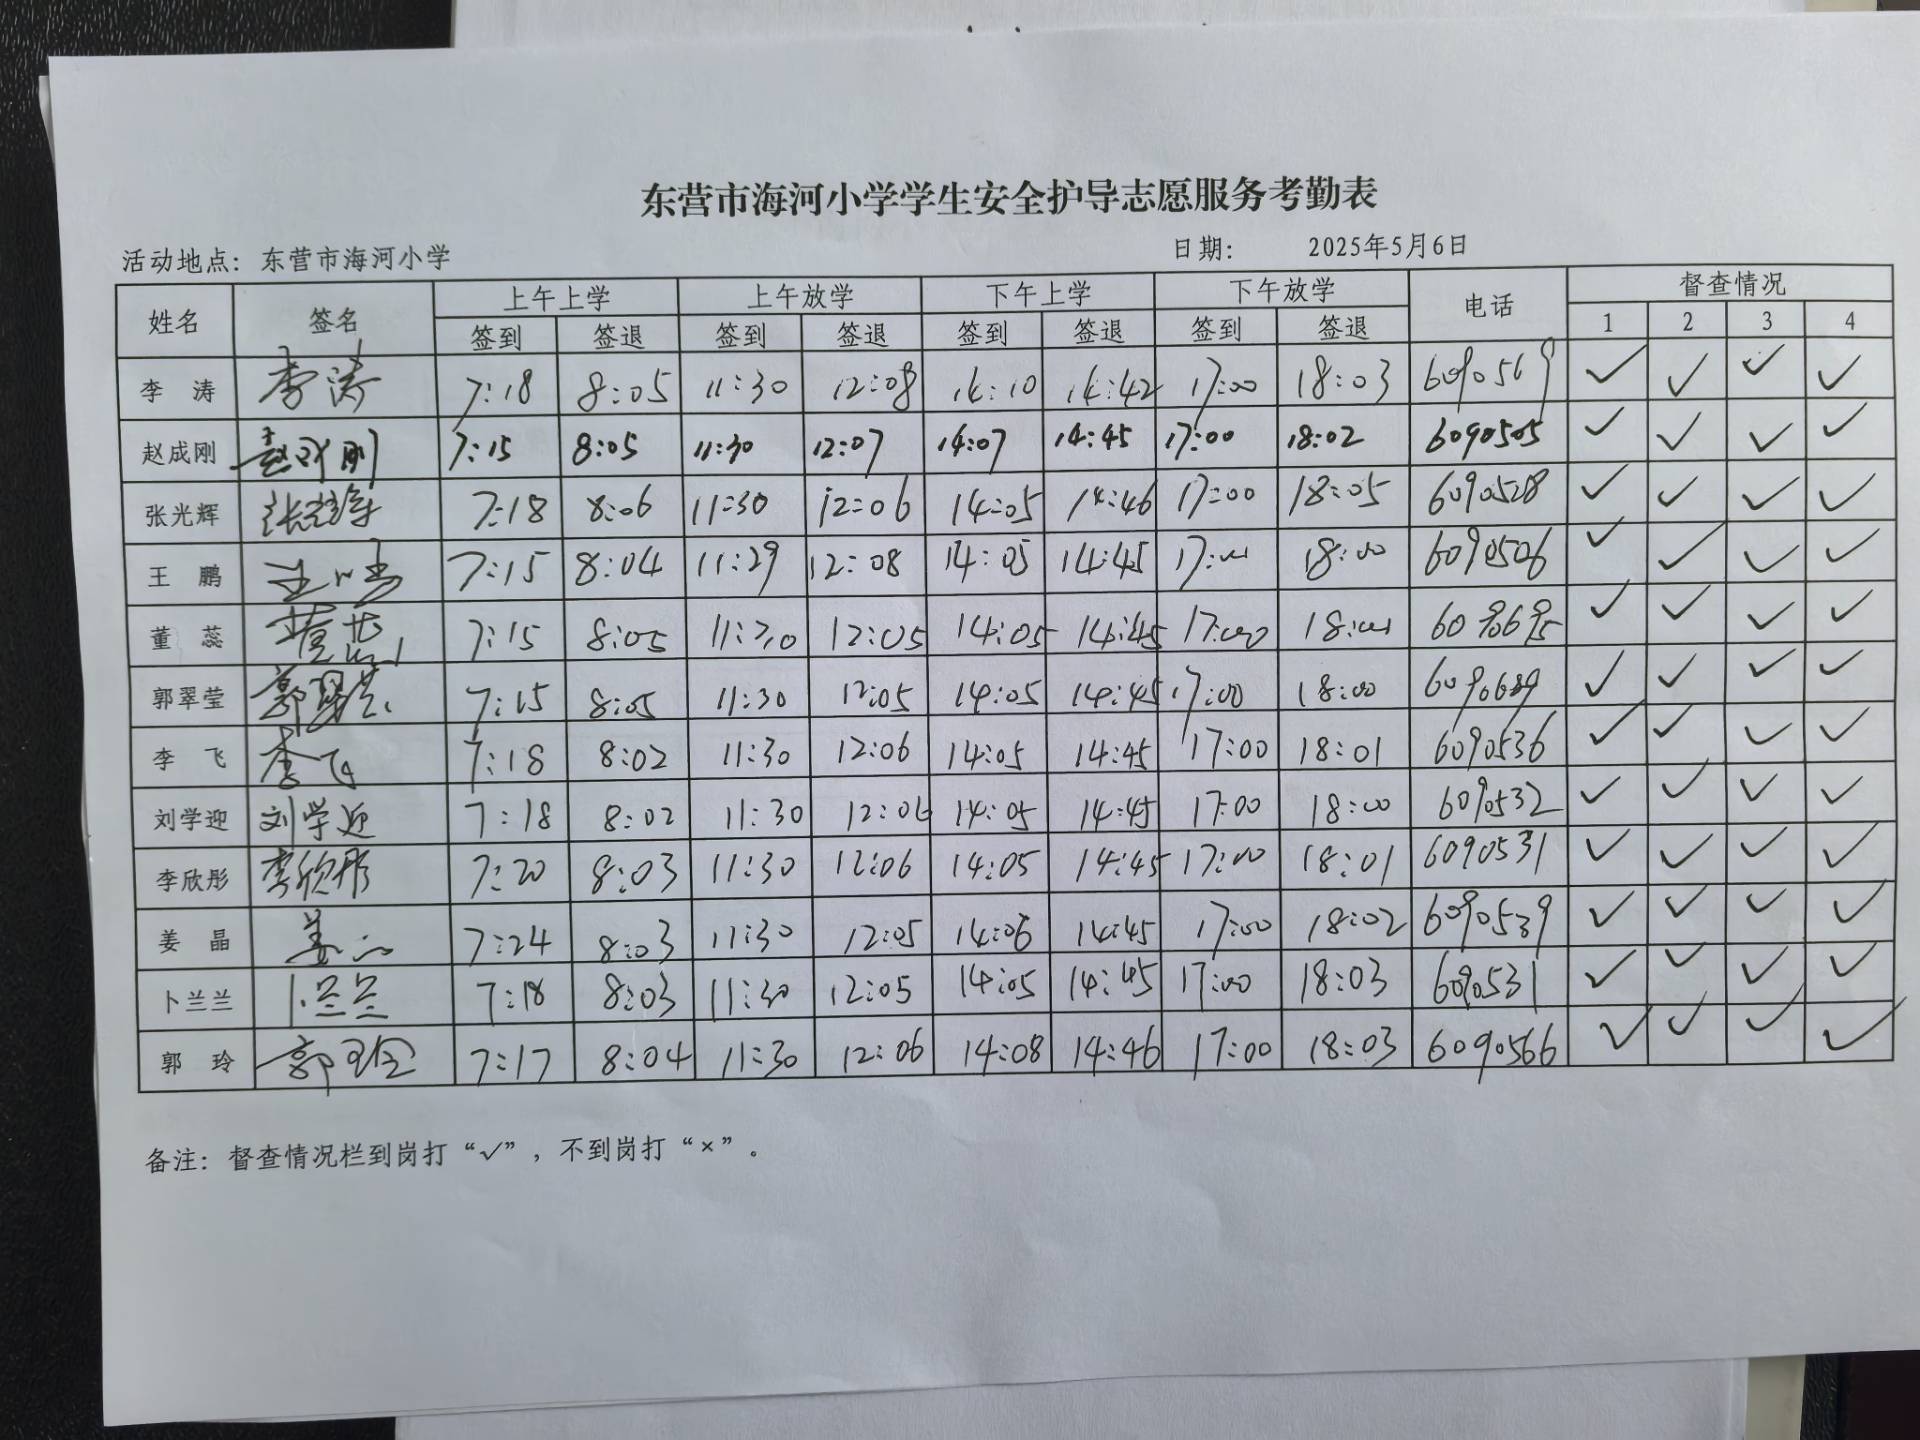 东营市海河小学学生安全护导志愿服务考勤表
活动地点: 东营市海河小学 日期: 2025年5月6日
姓名 签名 上午上学 上午放学 下午上学 下午放学 电话 督查情况
签到 签退 签到 签退 签到 签退 签到 签退 1 2 3 4
李 涛 李涛 7:18 8:05 11:30 12:08 14:10 14:42 17:00 18:03 6090569 ✓ ✓ ✓ ✓
赵成刚 赵成刚 7:15 8:05 11:30 12:07 14:07 14:45 17:00 18:02 6090505 ✓ ✓ ✓ ✓
张光辉 张光辉 7:18 8:06 11:30 12:06 14:05 14:46 17:00 18:05 6090528 ✓ ✓ ✓ ✓
王 鹏 7:15 8:04 11:29 12:08 14:05 14:45 17:00 18:00 6090506 ✓ ✓ ✓ ✓
董 蕊 董蕊 7:15 8:05 11:30 12:05 14:05 14:45 17:00 18:00 ✓ ✓ ✓ ✓
郭翠莹 郭翠莹 7:15 8:05 11:30 12:05 14:05 14:45 17:00 18:00 6090689 ✓ ✓ ✓ ✓
李 飞 李飞 7:18 8:02 11:30 12:06 14:05 14:45 17:00 18:01 6090536 ✓ ✓ ✓ ✓
刘学迎 刘学迎 7:18 8:02 11:30 12:06 14:05 14:45 17:00 18:00 6090532 ✓ ✓ ✓ ✓
李欣彤 李欣彤 7:20 8:03 11:30 12:06 14:05 14:45 17:00 18:01 6090531 ✓ ✓ ✓ ✓
姜 晶 7:24 8:03 11:30 12:05 14:06 14:45 17:00 18:02 6090539 ✓ ✓ ✓ ✓
卜兰兰 卜兰兰 7:18 8:03 11:30 12:05 14:05 14:45 17:00 18:03 6090531 ✓ ✓ ✓ ✓
郭 玲 郭玲 7:17 8:04 11:30 12:06 14:08 14:46 17:00 18:03 6090566 ✓ ✓ ✓ ✓
备注: 督查情况栏到岗打“✓”, 不到岗打“×”。